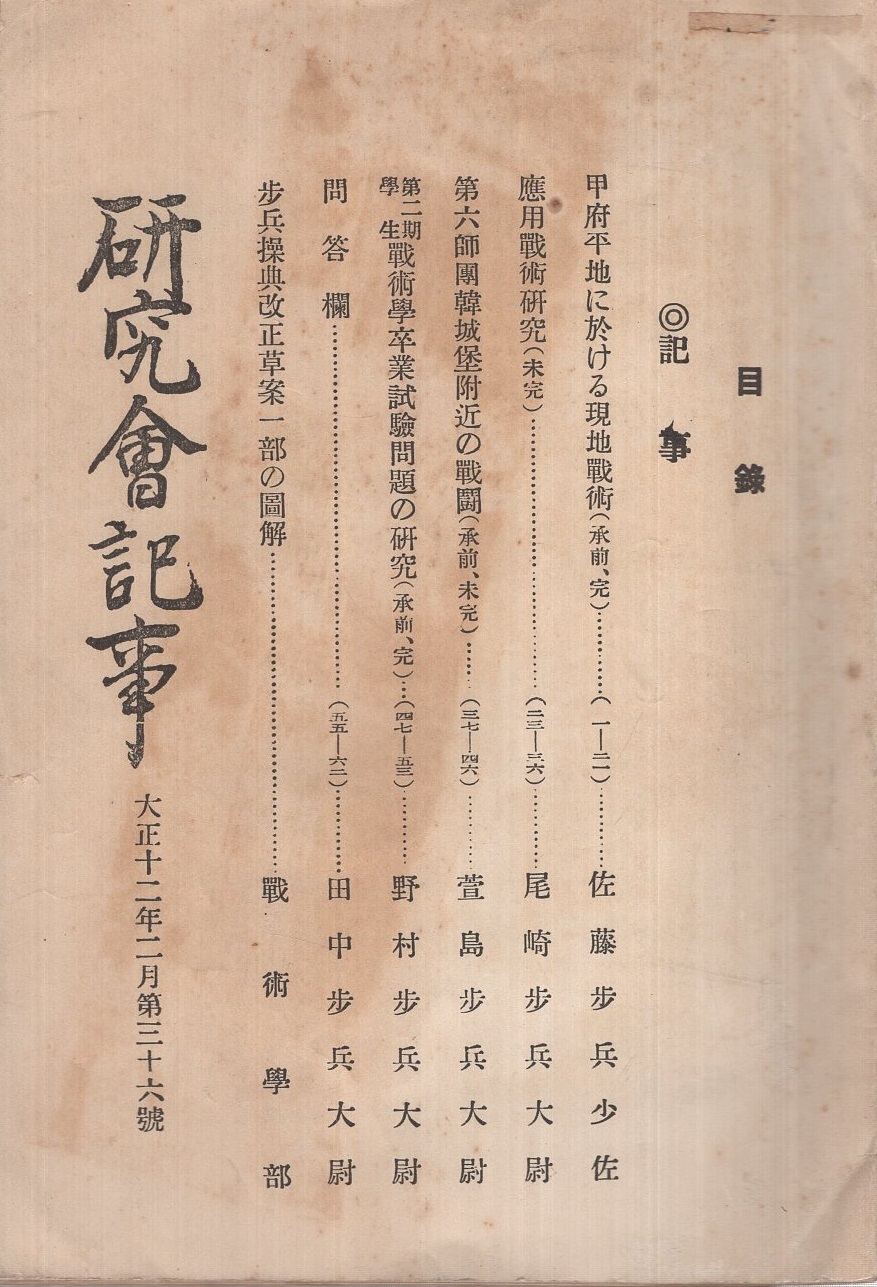 目錄
◎記事
甲府平地に於ける現地戰術(承前、完)…………(一—二一)…………佐藤步兵少佐
應用戰術硏究(未完)…………(二三—三六)…………尾崎步兵大尉
第六師團韓城堡附近の戰鬪(承前、未完)……(三七—四六)…………萱島步兵大尉
第二期學生戰術學卒業試驗問題の硏究(承前、完)…(四七—五三)…………野村步兵大尉
問答欄…………(五五—六二)…………田中步兵大尉
步兵操典改正草案一部の圖解…………戰術學部
硏究會記事
大正十二年二月第三十六號